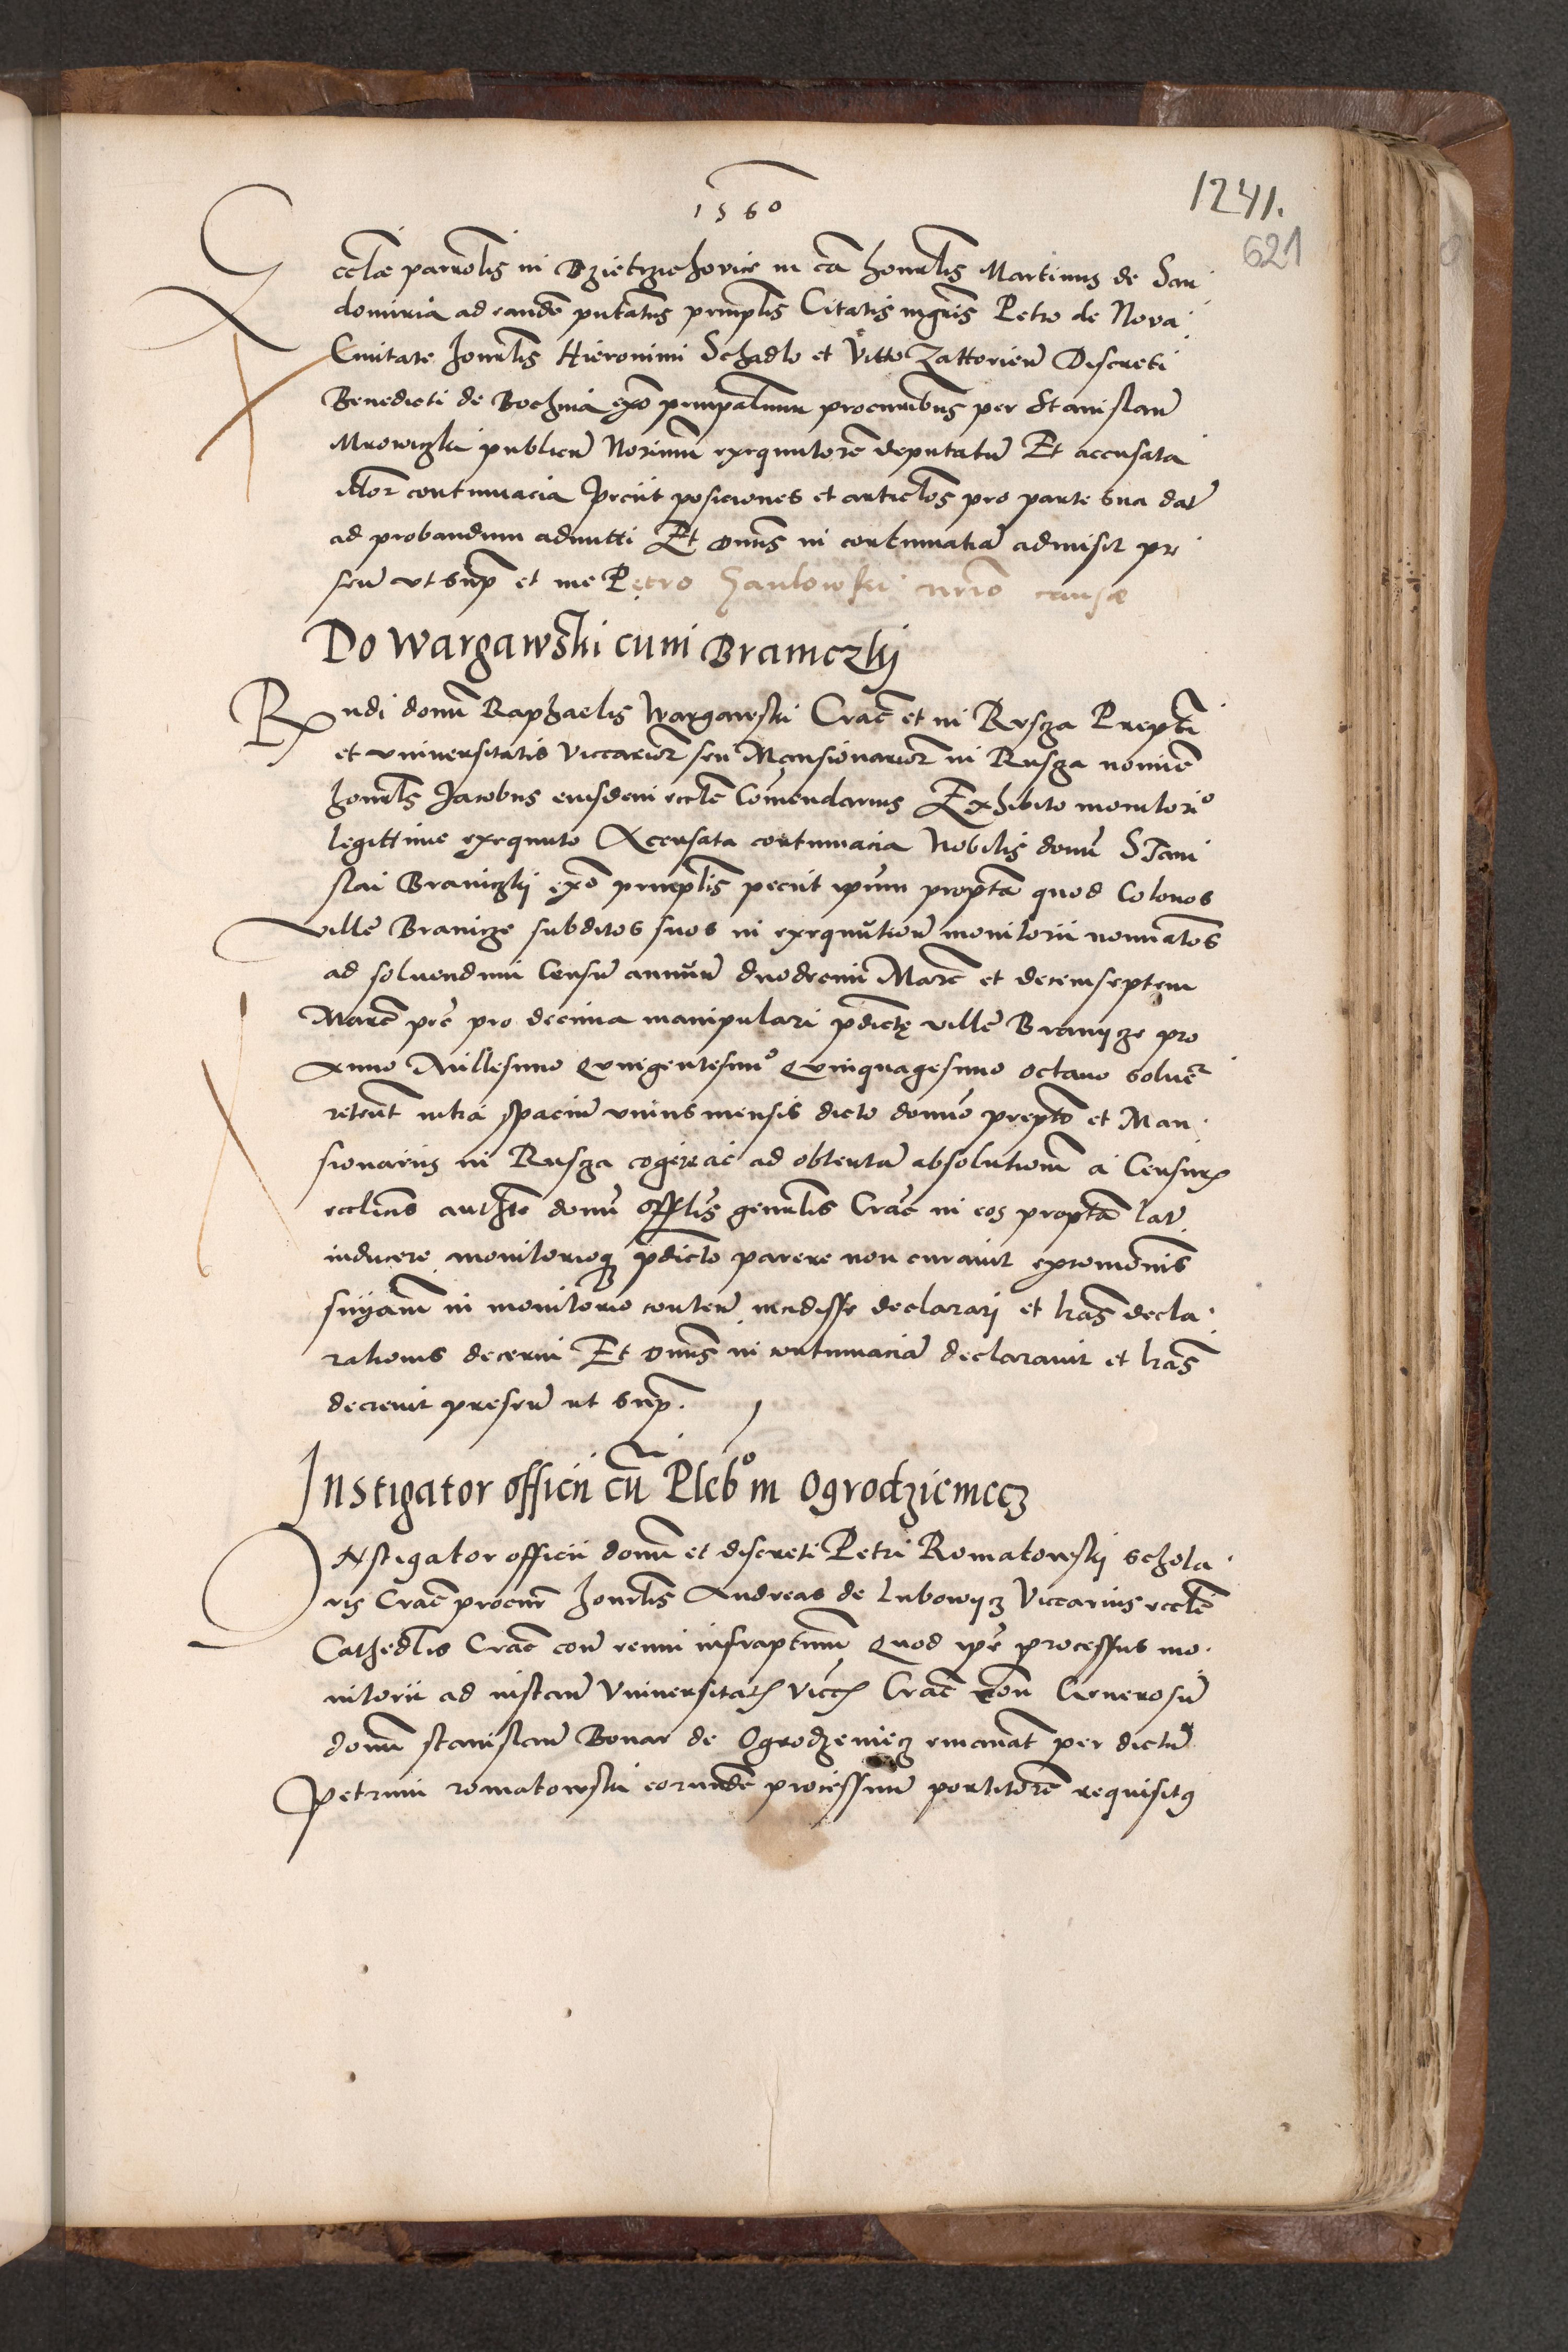 1560
1241.
621
Ecclæ parrochlis in Dzietrzichovice in ca honorblis Martinus de San
domiria ad eande putatus principlis Citatis mgris Petro de Nova
Civitate honorblis Hieronimi Schadlo et Vitto Zattorien Discreti
Benedicti de Bochnia exo principalium procuribus per Stanislaū
Mrowiczki publicū Notariū exequutorē deputatū Et accusata
illor contumacia petiit posiciones et articlos pro parte sua dat
ad probandum admitti Et dnus in contumatiā admisit pr
sen ut sup et me Petro notrio causæ
Do Wargawski cum Braniczkij
Rndi domi Raphaelis Wargawski Crac et in Rusza Prepti
et universitatis Viccarior seu Mansionarior in Rusza nomine
honorblis Jacobus eiusdem eccle Comendarius Exhibito monitorio
legittime exequuto Accusata contumacia Nobilis domi Stani
slai Braniczkij exo principlis petiit ipum propterea quod Colonos
ville Branicze subditos suos in exequutione monitorii nominatos
ad solvendum Censū annuū duodecim Marc et decemseptem
Marc pec pro decima manipulari pdicte ville Branijcze pro
Anno Millesimo Quingentesimo Quinquagesimo octavo solver
retent intra spaciū unius mensis dicto domo prepto et Man
sionariis in Rusza cogere ac ad obtentā absolutionem a Censuris
ecclicis authte domi offlis genralis Crac in eos propterea lat
inducere monitorioq pdicto parere non curavit excomunis
sniam in monitorio conten incidisse declarari et lras decla
rationis decerni Et dnus in contumaciā declaravit et lras
decrevit presen ut sup.
Instigator officii cū Plebo in Ogrodziemecz
Instigator officii domi et discreti Petri Romatowskij schola
ris Crac procur honorblis Andreas de Lubowijcz Viccarius eccle
Cathedlis Crac con reum infrascriptum Quod ipe processus mo
nitorii ad instan Universitatis Viccor Crac con Generosū
domi stanislaū Bonar de Ogrodzeniecz emanat per dictū
Petrum romatowski eorunde processuū portitorē requisitus